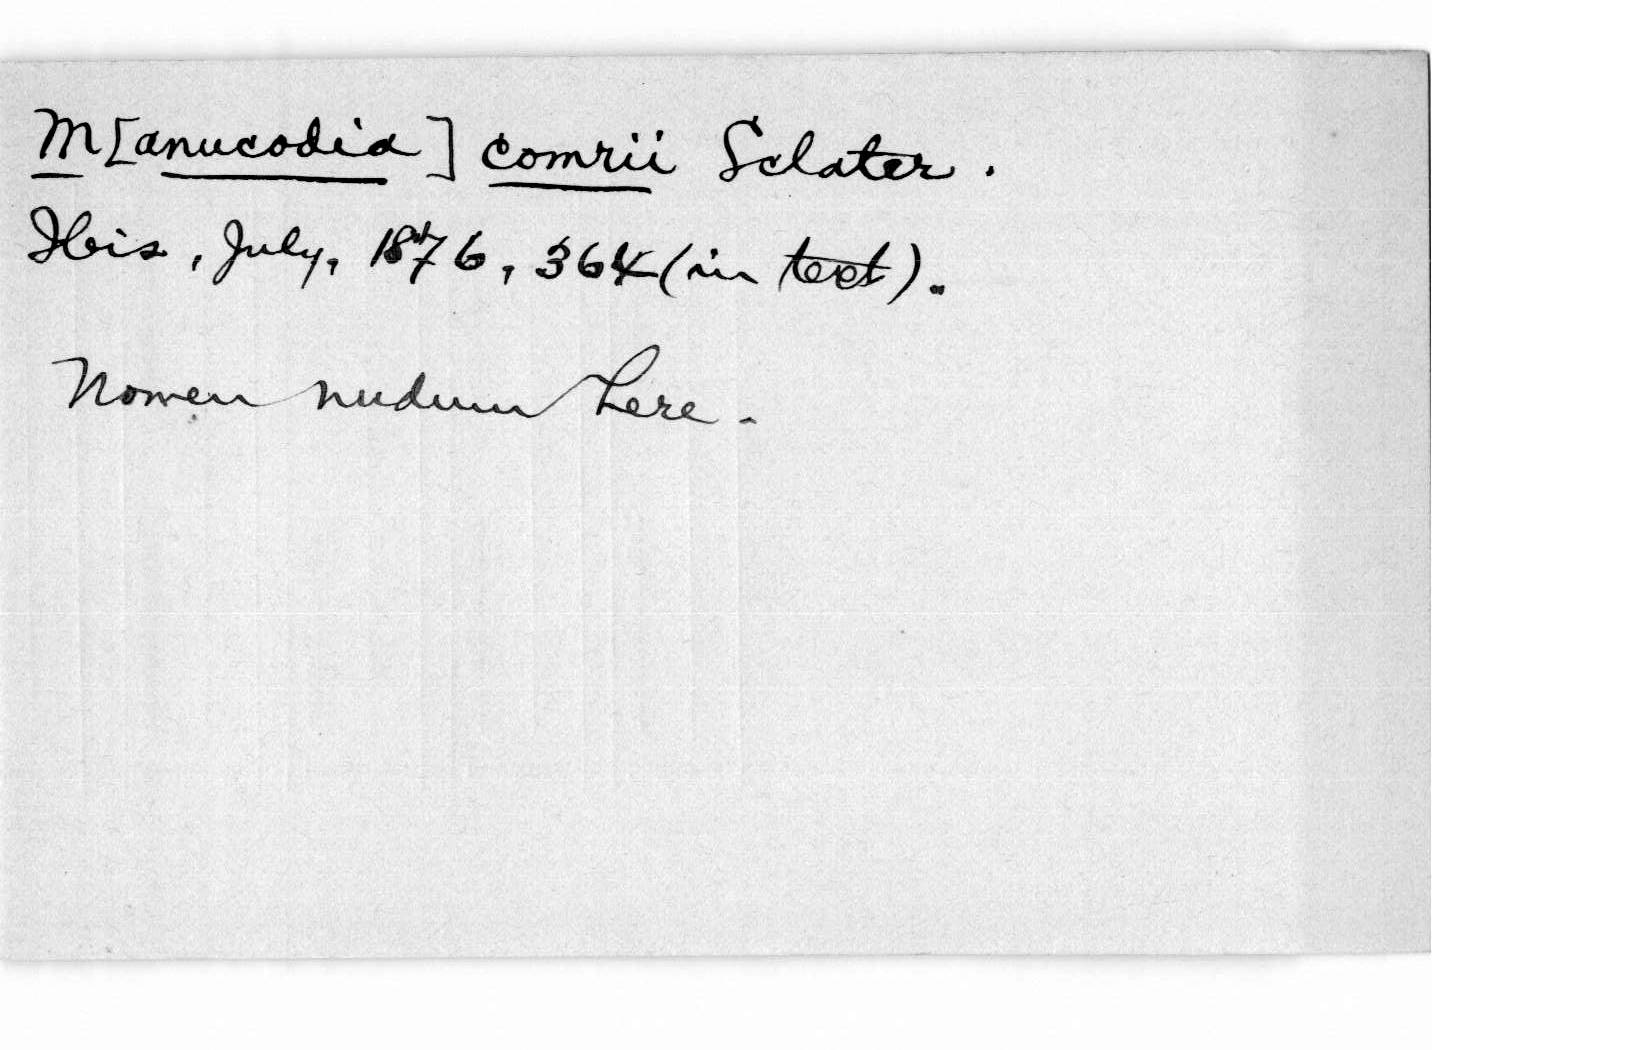 M[anucodia] comrii Sclater.
Ibis, July, 1876, 364 (in text).
Nomen nudum here.